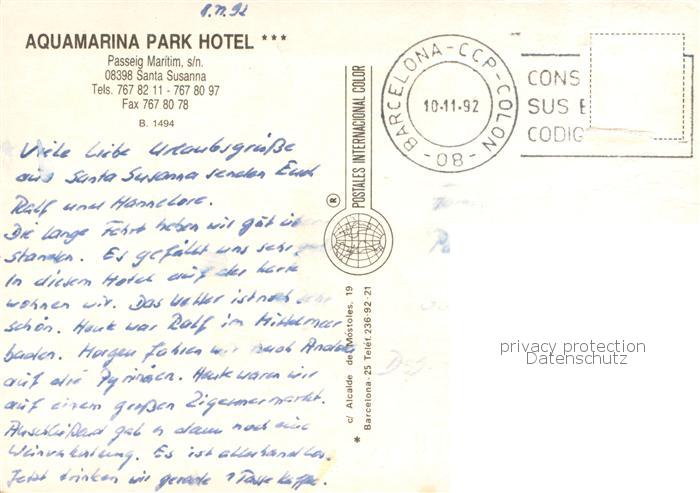 8.11.92
AQUAMARINA PARK HOTEL ***
Passeig Marítim, s/n.
08398 Santa Susanna
Tels. 767 82 11 - 767 80 97
Fax 767 80 78
B. 1494
Viele liebe Urlaubsgrüße
aus Santa Susanna senden Euch
Ralf und Hannelore.
Die lange Fahrt haben wir gut über
standen. Es gefällt uns sehr
In diesem Hotel auf der Karte
wohnen wir. Das Wetter ist noch sehr
schön. Heute war Ralf im Mittelmeer
baden. Morgen fahren wir nach Andorra
auf die Pyrinäen. Heute waren wir
auf einem großen Zigeunermarkt.
Anschließend gab es dann noch eine
Weinverkostung. Es ist allerhand los.
Jetzt trinken wir gerade 1 Tasse Kaffee.
POSTALES INTERNACIONAL COLOR
®
* c/ Alcalde de Móstoles, 19
Barcelona-25 Teléf. 236-92-21
BARCELONA-CCP-COLON-
10-11-92
-08-
CONS
SUS E
CODIG
privacy protection
Datenschutz